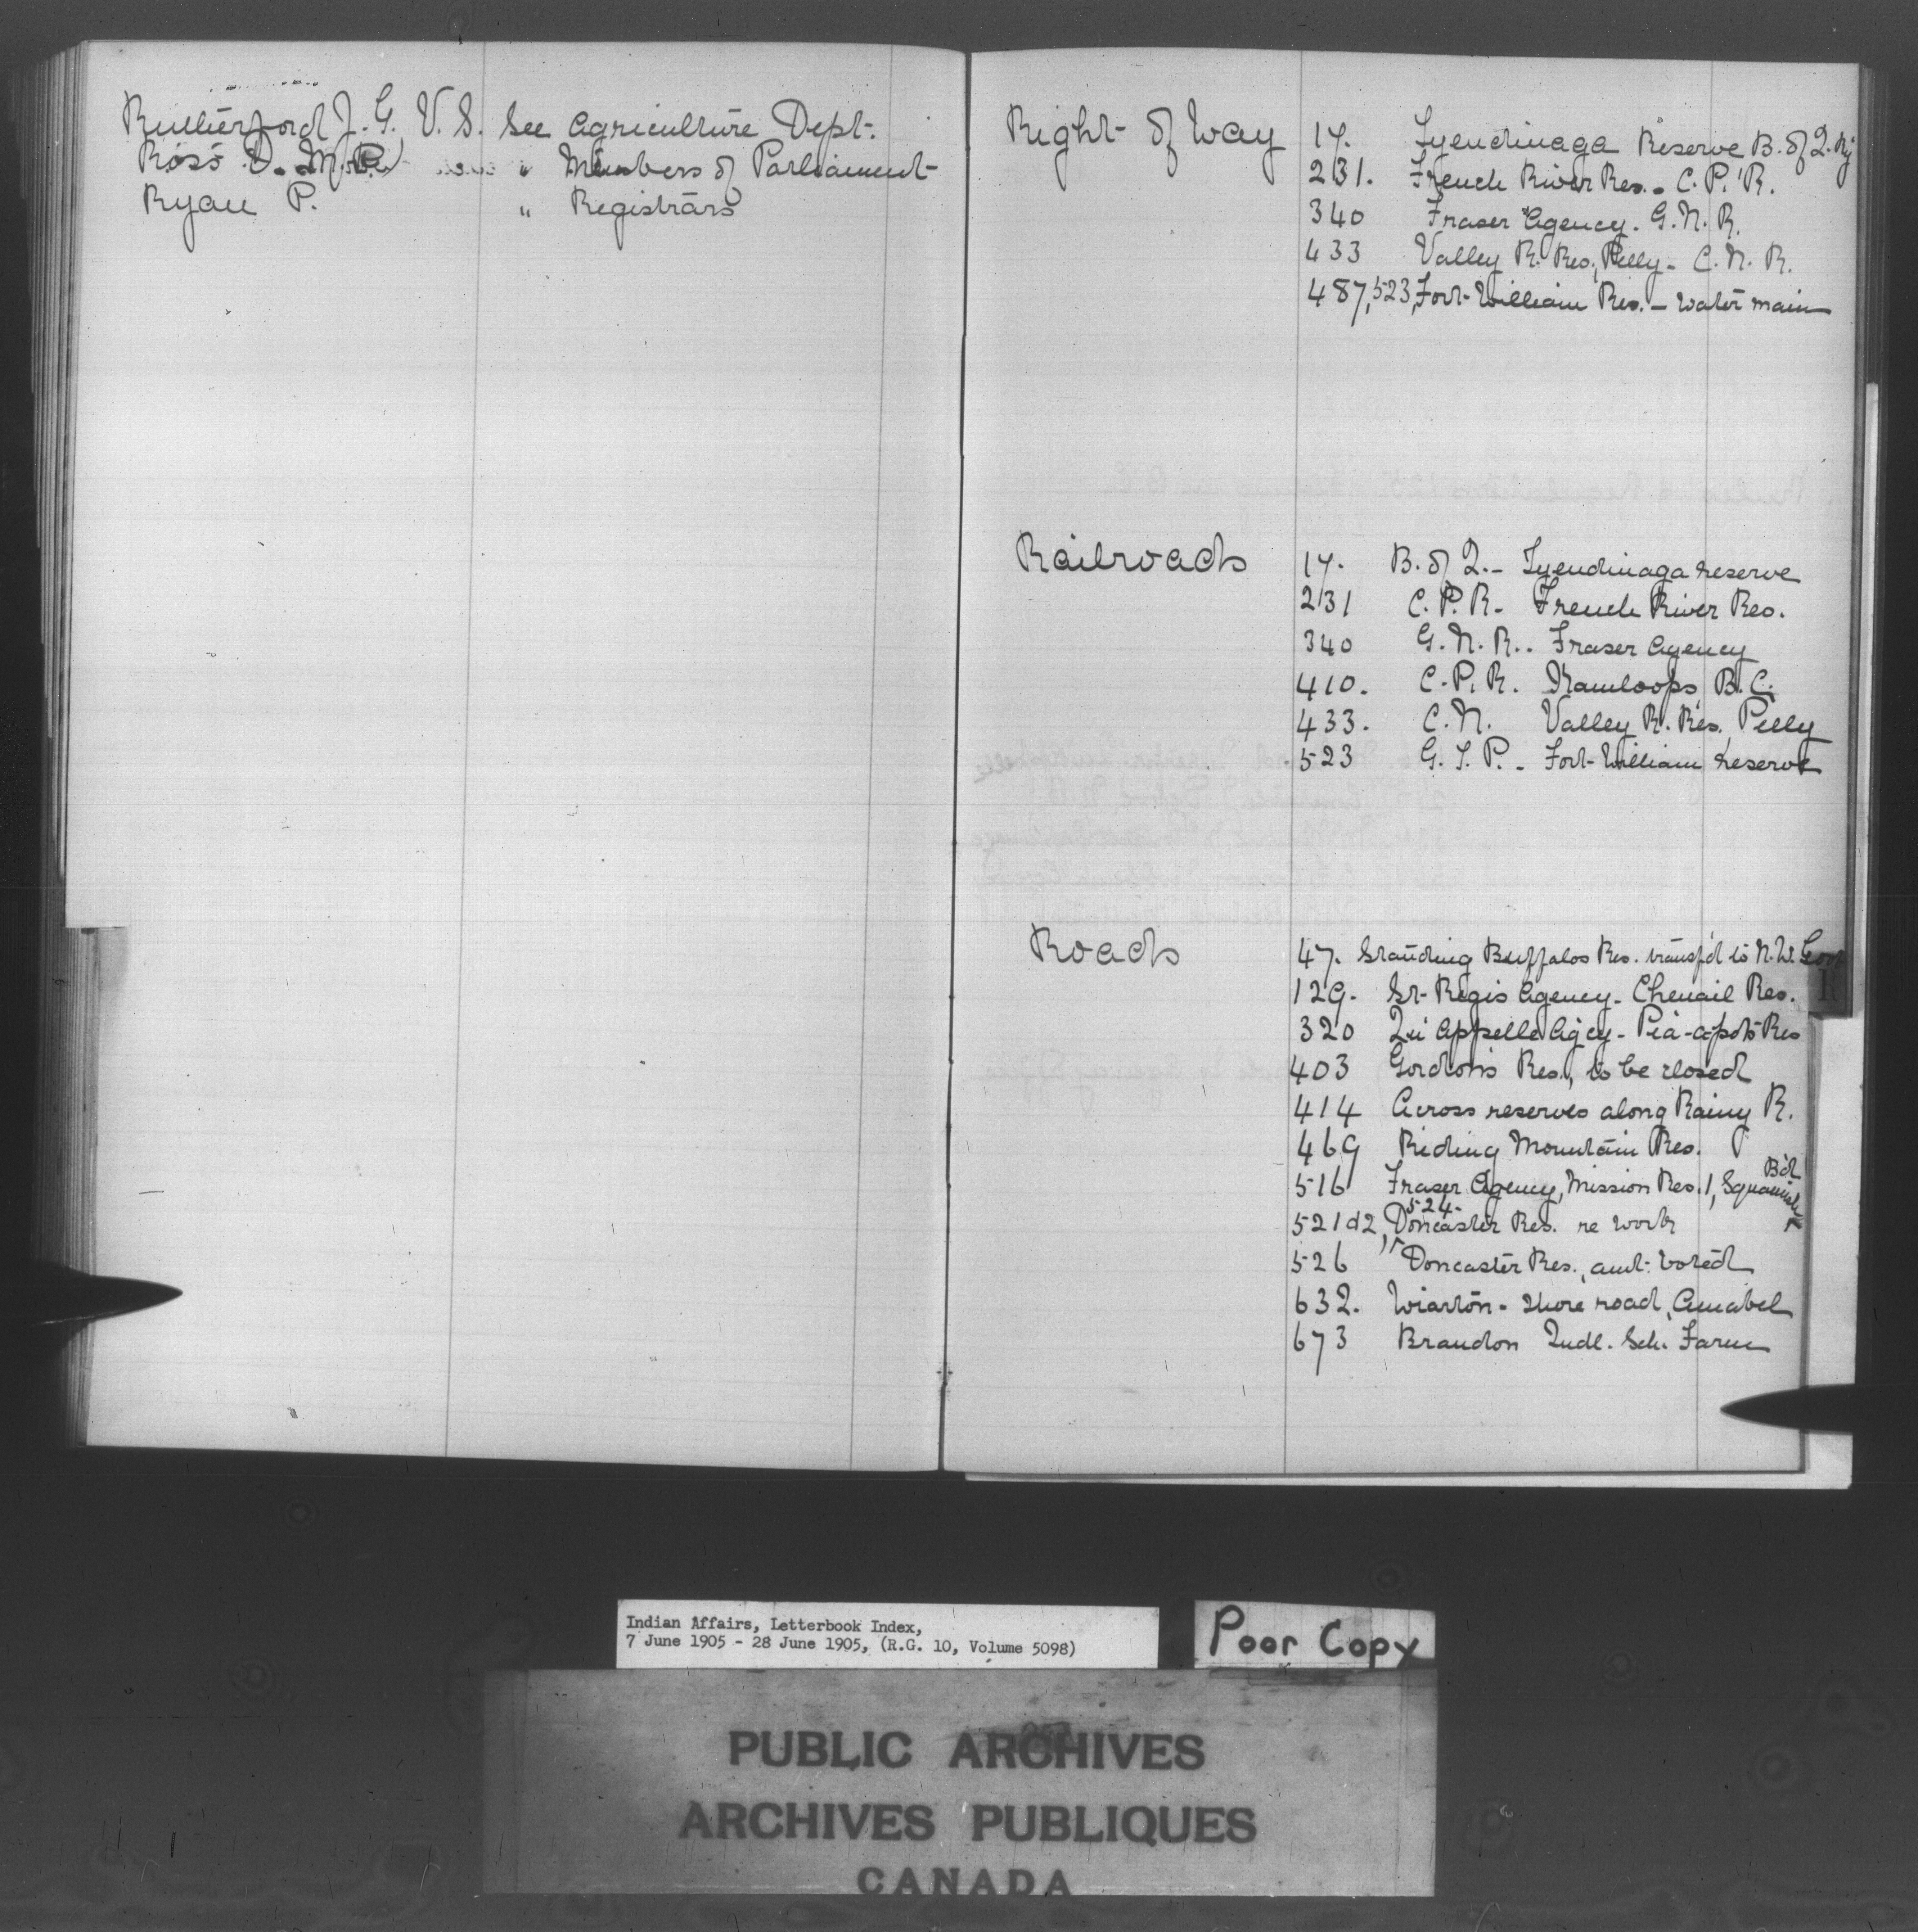 Rutherford J. G. V. S. See Agriculture Dept.
Ross D. M. P. " Members of Parliament
Ryan P. " Registrars
Right of Way 17. Tyendinaga Reserve B. of Q. Ry
231. French River Res. - C. P. R.
340 Fraser Agency. G. N. R.
433 Valley R. Res., Pelly - C. N. R.
487, 523, Fort William Res. - water main
Railroads 17. B. of Q. - Tyendinaga reserve
231 C. P. R. - French River Res.
340 G. N. R.. Fraser Agency
410. C. P. R. Kamloops, B. C.
433. C. N. Valley R. Res. Pelly
523 G. T. P. - Fort William reserve
Roads 47. Standing Buffalos Res. transf'd to N. W. Govt
129. St Regis Agency - Chenail Res.
320 Qu'Appelle Agcy - Pia-a-pot's Res
403 Gordon's Res., to be closed
414 Across reserves along Rainy R.
469 Riding Mountain Res.
516 Fraser Agency, Mission Res. 1, Squamish Bd
521 & 2, 524 - Doncaster Res. re work
526 " Doncaster Res., amt. voted
632. Wiarton - shore road, Amabel
673 Brandon Indl. Sch. Farm
R
Indian Affairs, Letterbook Index,
7 June 1905 - 28 June 1905, (R.G. 10, Volume 5098)
Poor Copy
PUBLIC ARCHIVES
ARCHIVES PUBLIQUES
CANADA